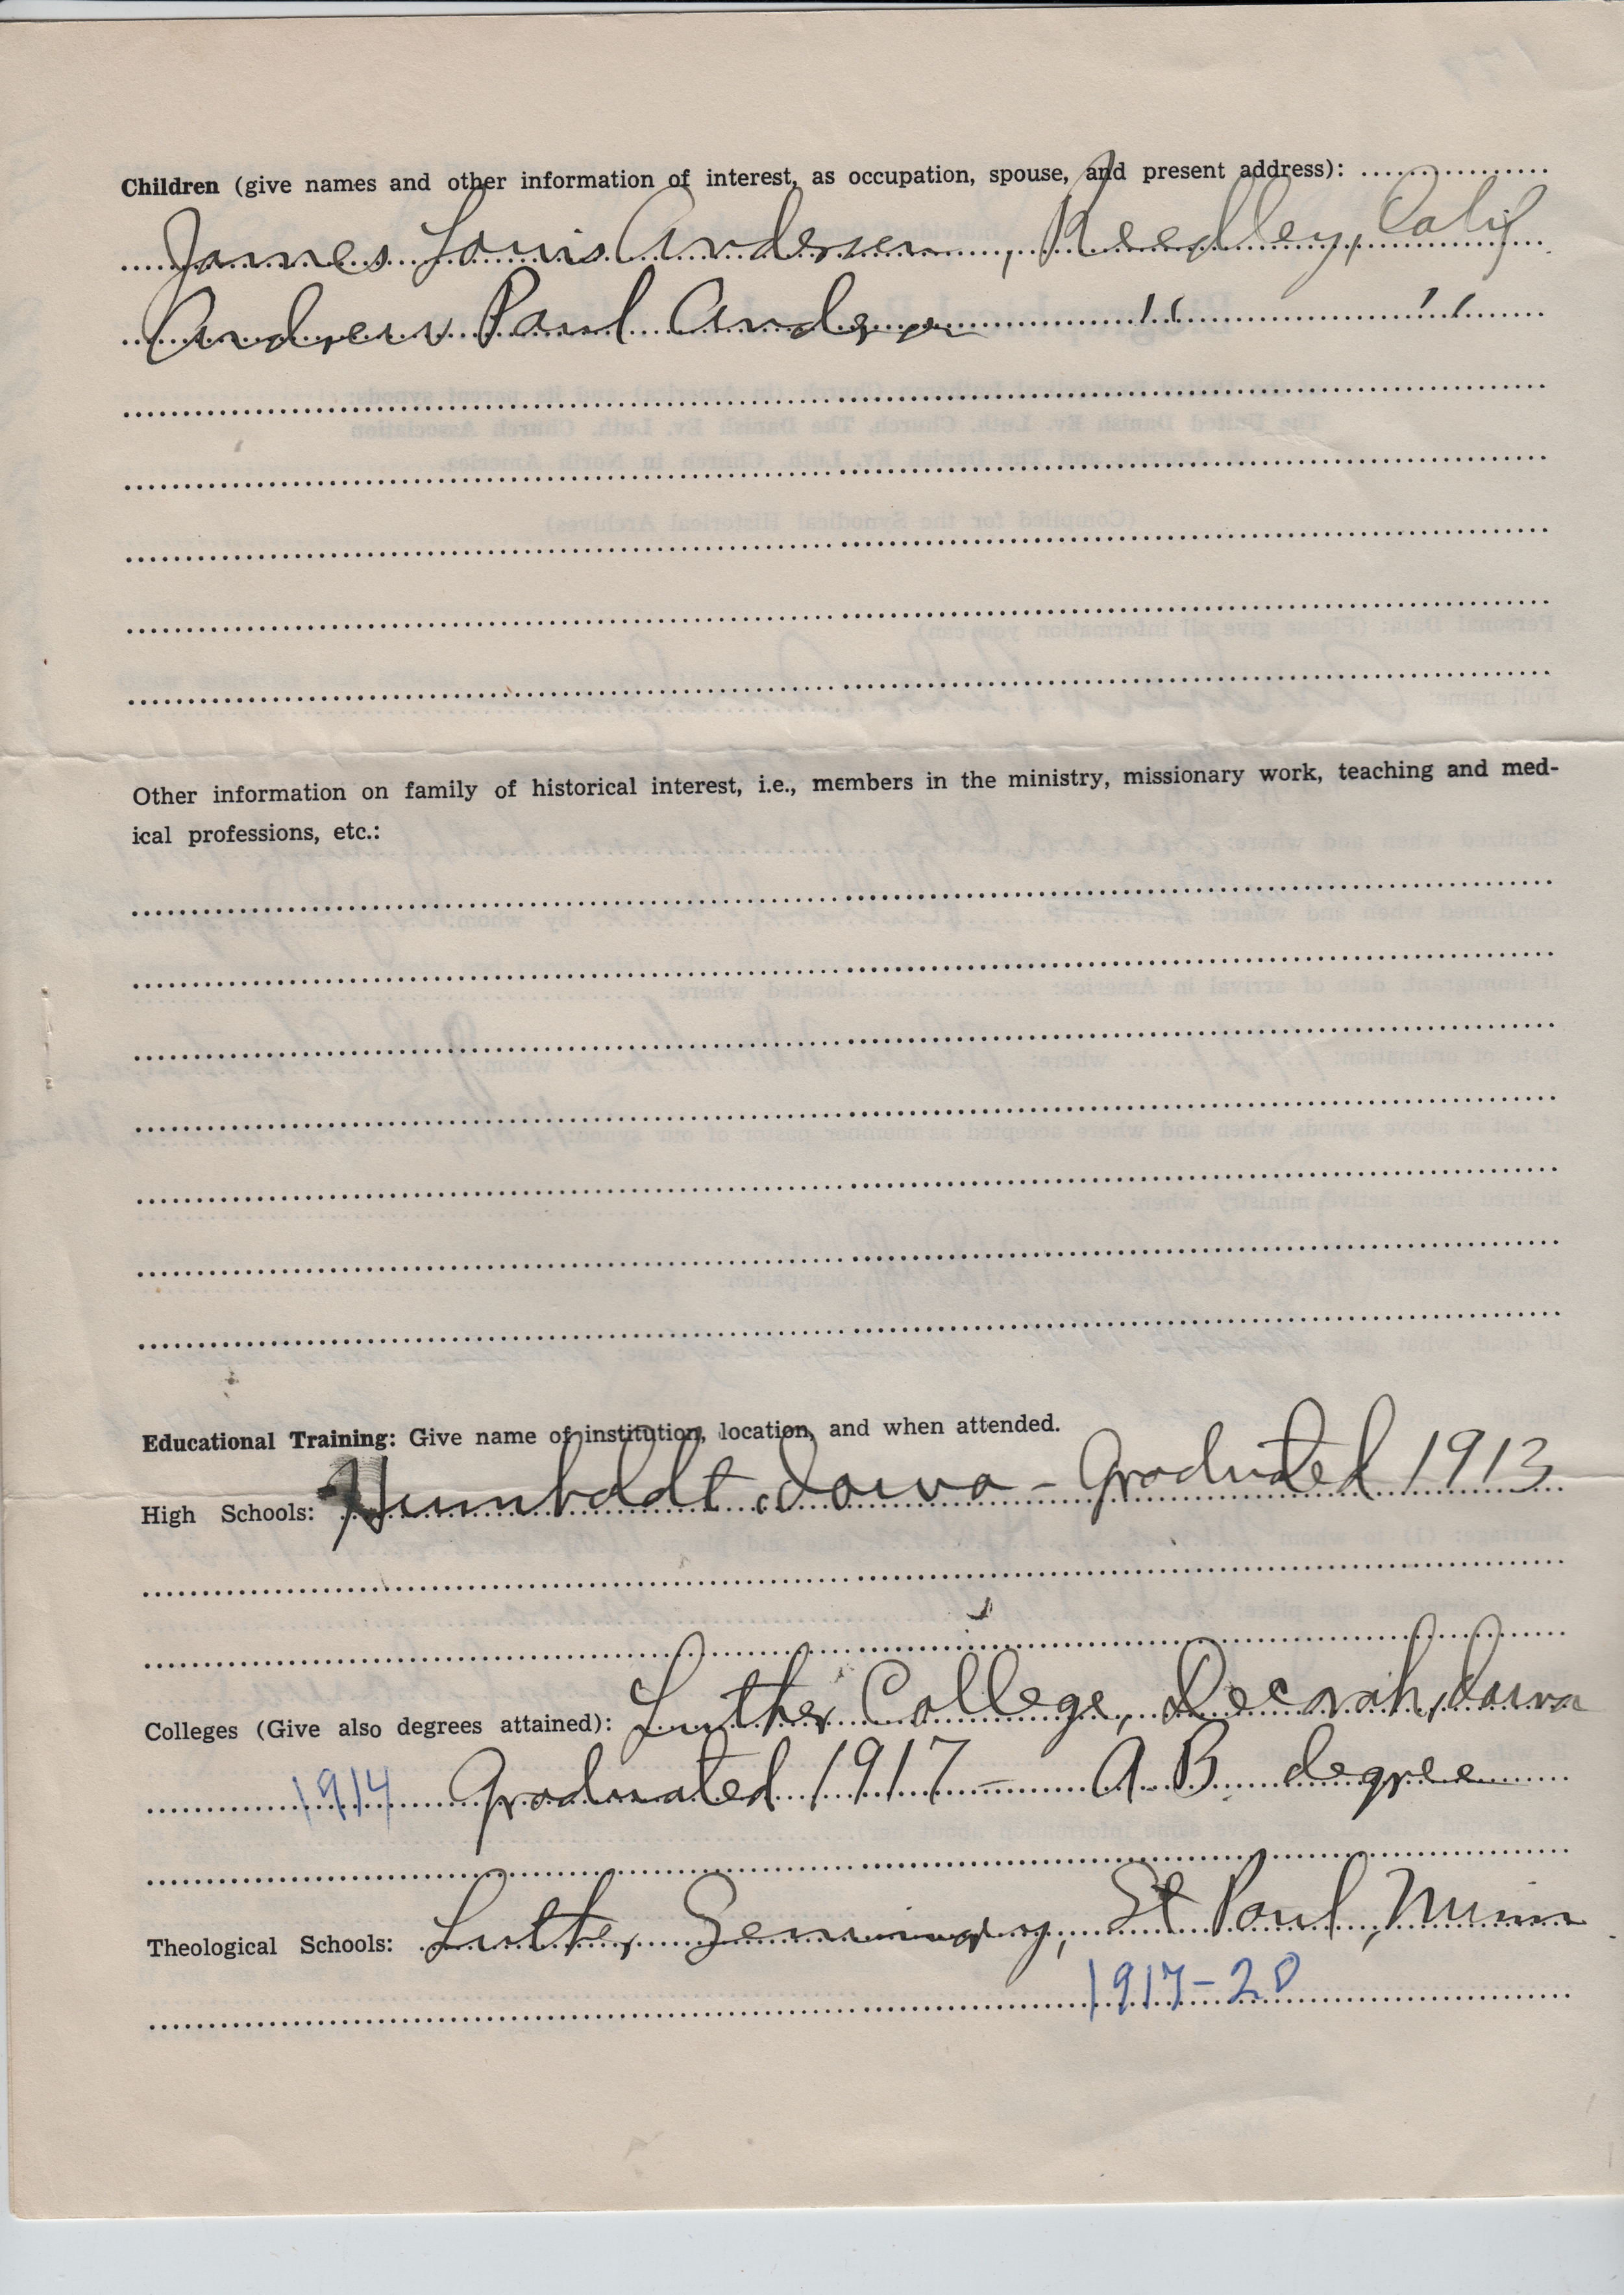 Children (give names and other information of interest, as occupation, spouse, and present address):
James Louis Andersen, Reedley, Calif
Andrew Paul Andersen " "
Other information on family of historical interest, i.e., members in the ministry, missionary work, teaching and med-
ical professions, etc.:
Educational Training: Give name of institution, location, and when attended.
High Schools: Humboldt Iowa - Graduated 1913
Colleges (Give also degrees attained): Luther College, Decorah, Iowa
1914 Graduated 1917 — A.B. degree
Theological Schools: Luther Seminary, St Paul, Minn
1917-20